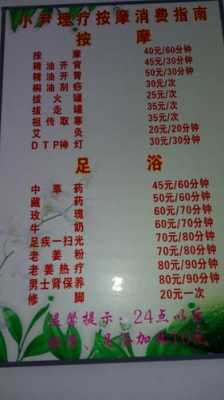 小尹理疗按摩消费指南
按 摩
按 摩 40元/60分钟
精油开背 45元/30分钟
精油开胃 50元/30分钟
刮痧 30元/次
拔火罐 25元/次
拔走罐 35元/次
祖传取寒 35元/次
艾灸 20元/20分钟
DTP神灯 30元/30分钟
足 浴
中草药 45元/60分钟
藏药 50元/60分钟
玫瑰 60元/70分钟
牛奶 60元/70分钟
足疾一扫光 70元/80分钟
老姜粉 70元/80分钟
老姜热疗 80元/90分钟
男士肾保养 80元/90分钟
修脚 20元一次
温馨提示：24点以后
加